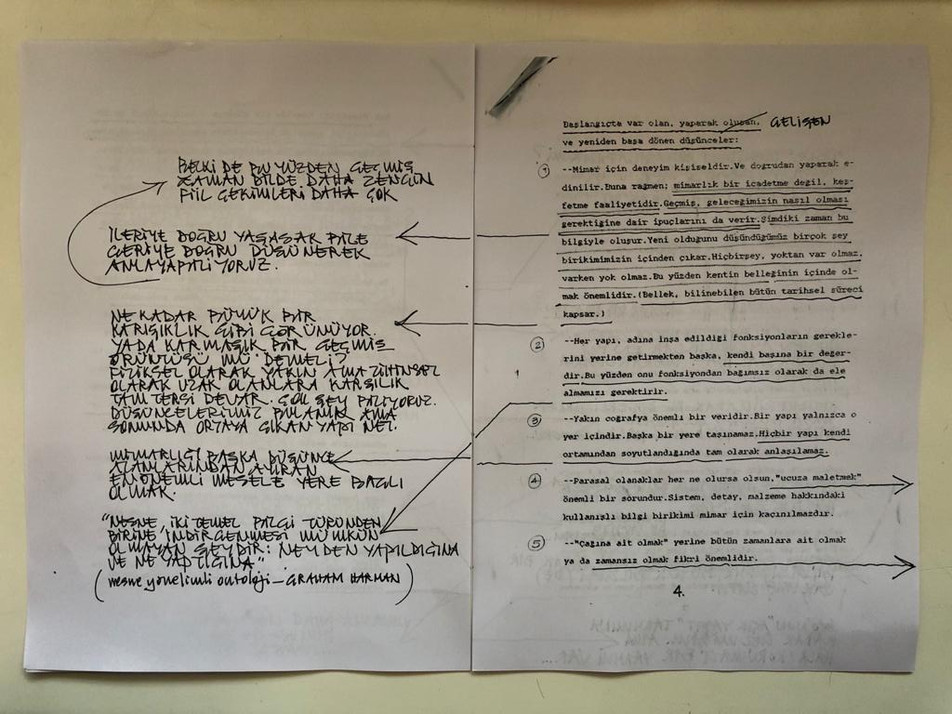 BELKİ DE BU YÜZDEN GEÇMİŞ
ZAMAN BİLDE DAHA ZENGİN
FİİL ÇEKİMLERİ DAHA ÇOK
İLERİYE DOĞRU YAŞASAK BİLE
GERİYE DOĞRU DÜŞÜNEREK
ANLAYABİLİYORUZ.
NE KADAR BÜYÜK BİR
KARIŞIKLIK GİBİ GÖRÜNÜYOR.
YADA KARMAŞIK BİR GEÇMİŞ
ÖRÜNTÜSÜ MÜ DEMELİ?
FİZİKSEL OLARAK YAKIN AMA ZİHİNSEL
OLARAK UZAK OLANLARA KARŞILIK
TAM TERSİ DE VAR. ÇOK ŞEY BİLİYORUZ.
DÜŞÜNCELERİMİZ BULANIK AMA
SONUNDA ORTAYA ÇIKAN YAPI NET.
MİMARLIĞI BAŞKA DÜŞÜNCE
ALANLARINDAN AYIRAN
EN ÖNEMLİ MESELE YERE BAĞLI
OLMAK.
"NESNE, İKİ TEMEL BİLGİ TÜRÜNDEN
BİRİNE İNDİRGENMESİ MÜMKÜN
OLMAYAN ŞEYDİR: NEYDEN YAPILDIĞINA
VE NE YAPTIĞINA"
(nesne yönelimli ontoloji – GRAHAM HARMAN)
Başlangıçta var olan, yaparak oluşan, GELİŞEN
ve yeniden başa dönen düşünceler:
1 --Mimar için deneyim kişiseldir.Ve doğrudan yaparak e-
dinilir.Buna rağmen; mimarlık bir icadetme değil, keş-
fetme faaliyetidir.Geçmiş, geleceğimizin nasıl olması
gerektiğine dair ipuçlarını da verir.Şimdiki zaman bu
bilgiyle oluşur.Yeni olduğunu düşündüğümüz birçok şey
birikimimizin içinden çıkar.Hiçbirşey, yoktan var olmaz.
varken yok olmaz.Bu yüzden kentin belleğinin içinde ol-
mak önemlidir.(Bellek, bilinebilen bütün tarihsel süreci
kapsar.)
2 --Her yapı, adına inşa edildiği fonksiyonların gerekle-
rini yerine getirmekten başka, kendi başına bir değer-
dir.Bu yüzden onu fonksiyondan bağımsız olarak da ele
almamızı gerektirir.
3 --Yakın coğrafya önemli bir veridir.Bir yapı yalnızca o
yer içindir.Başka bir yere taşınamaz.Hiçbir yapı kendi
ortamından soyutlandığında tam olarak anlaşılamaz.
4 --Parasal olanaklar her ne olursa olsun,"ucuza maletmek"
önemli bir sorundur.Sistem, detay, malzeme hakkındaki
kullanışlı bilgi birikimi mimar için kaçınılmazdır.
5 --"Çağına ait olmak" yerine bütün zamanlara ait olmak
ya da zamansız olmak fikri önemlidir.
4.